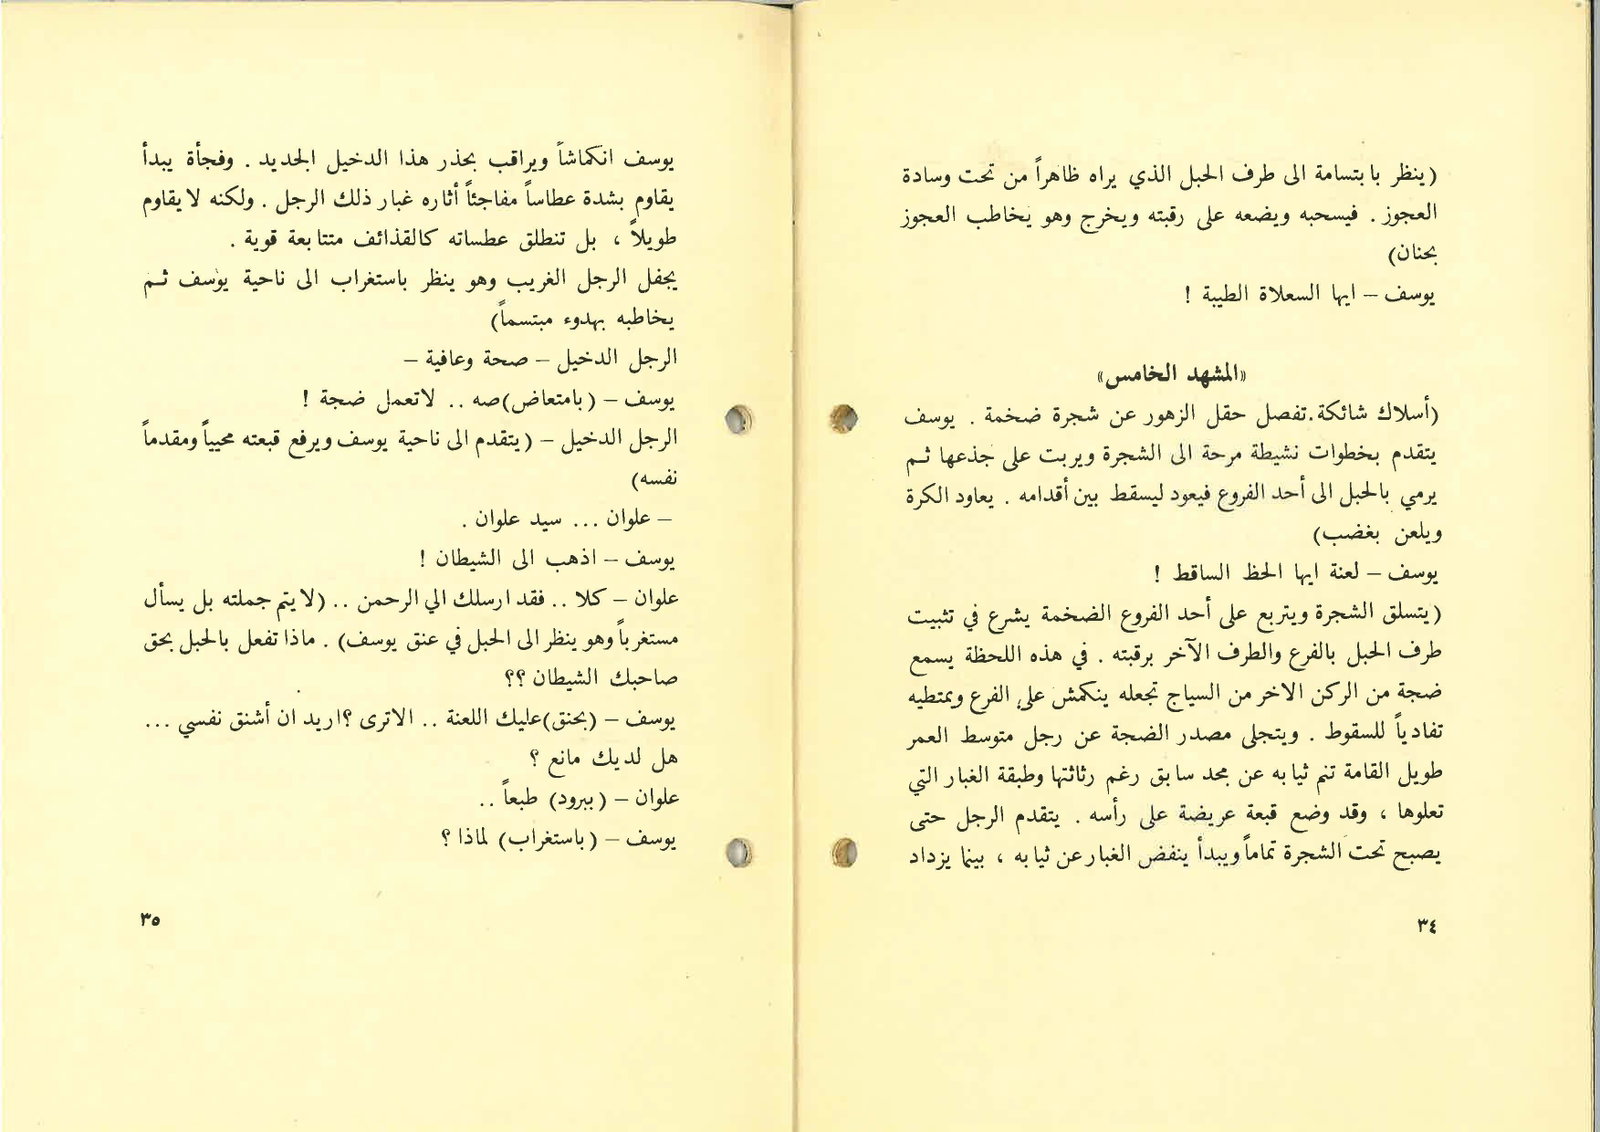 (ينظر بابتسامة الى طرف الحبل الذي يراه ظاهراً من تحت وسادة
العجوز . فيسحبه ويضعه على رقبته ويخرج وهو يخاطب العجوز
بحنان)
يوسف – ايها السعلاة الطيبة !
«المشهد الخامس»
(أسلاك شائكة.تفصل حقل الزهور عن شجرة ضخمة . يوسف
يتقدم بخطوات نشيطة مرحة الى الشجرة ويربت على جذعها ثم
يرمي بالحبل الى أحد الفروع فيعود ليسقط بين أقدامه . يعاود الكرة
ويلعن بغضب)
يوسف – لعنة ايها الحظ الساقط !
(يتسلق الشجرة ويتربع على أحد الفروع الضخمة يشرع في تثبيت
طرف الحبل بالفرع والطرف الآخر برقبته . في هذه اللحظة يسمع
ضجة من الركن الاخر من السياج تجعله ينكمش على الفرع ويمتطيه
تفادياً للسقوط . ويتجلى مصدر الضجة عن رجل متوسط العمر
طويل القامة تنم ثيابه عن مجد سابق رغم رثاثتها وطبقة الغبار التي
تعلوها ، وقد وضع قبعة عريضة على رأسه . يتقدم الرجل حتى
يصبح تحت الشجرة تماماً ويبدأ ينفض الغبار عن ثيابه ، بينما يزداد
٣٤
يوسف انكماشاً ويراقب بحذر هذا الدخيل الجديد . وفجأة يبدأ
يقاوم بشدة عطاساً مفاجئاً أثاره غبار ذلك الرجل . ولكنه لايقاوم
طويلاً ، بل تنطلق عطساته كالقذائف متتابعة قوية .
يجفل الرجل الغريب وهو ينظر باستغراب الى ناحية يوسف ثم
يخاطبه بهدوء مبتسماً)
الرجل الدخيل – صحة وعافية –
يوسف – (بامتعاض)صه .. لاتعمل ضجة !
الرجل الدخيل – (يتقدم الى ناحية يوسف ويرفع قبعته محيياً ومقدماً
نفسه)
– علوان ... سيد علوان .
يوسف – اذهب الى الشيطان !
علوان – كلا .. فقد ارسلك الي الرحمن .. (لايتم جملته بل يسأل
مستغرباً وهو ينظر الى الحبل في عنق يوسف) . ماذا تفعل بالحبل بحق
صاحبك الشيطان ؟؟
يوسف – (بحنق)عليك اللعنة .. الاترى ؟اريد ان أشنق نفسي ...
هل لديك مانع ؟
علوان – (ببرود) طبعاً ..
يوسف – (باستغراب) لماذا ؟
٣٥